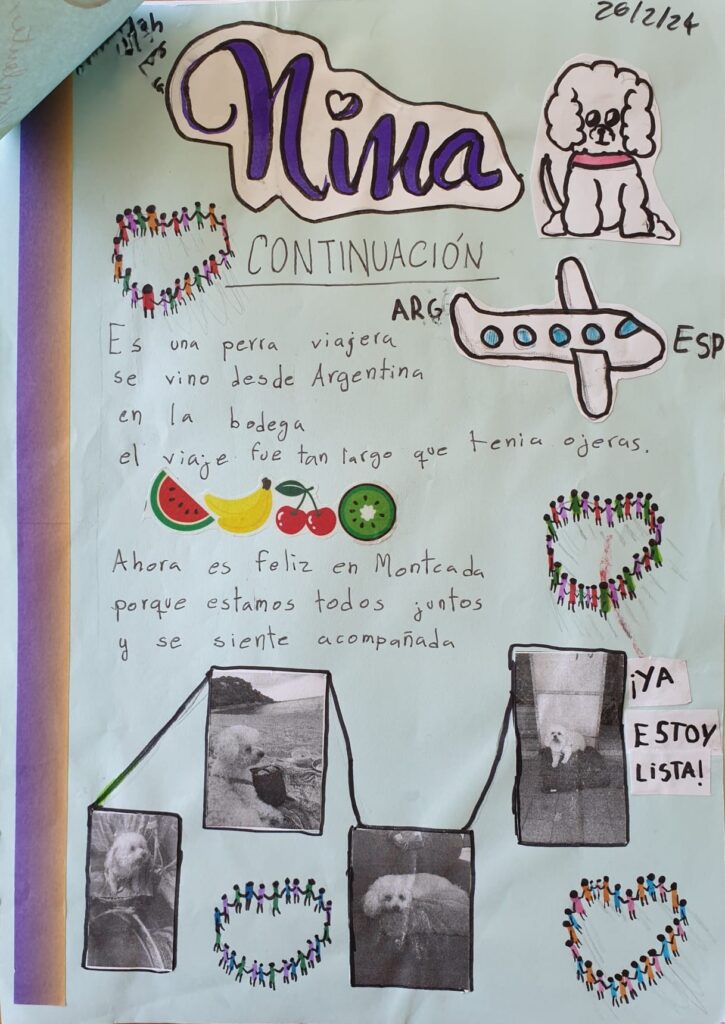 26/2/24
Nina
CONTINUACIÓN
ARG
ESP
Es una perra viajera
se vino desde Argentina
en la bodega
el viaje fue tan largo que tenia ojeras.
Ahora es feliz en Montcada
porque estamos todos juntos
y se siente acompañada
¡YA
ESTOY
LISTA!